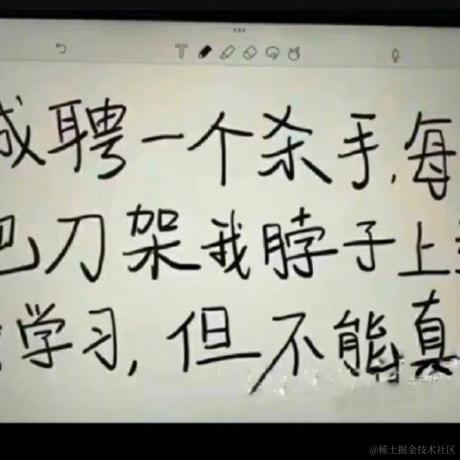 诚聘一个杀手,每
把刀架我脖子上
学习,但不能真
@稀土掘金技术社区